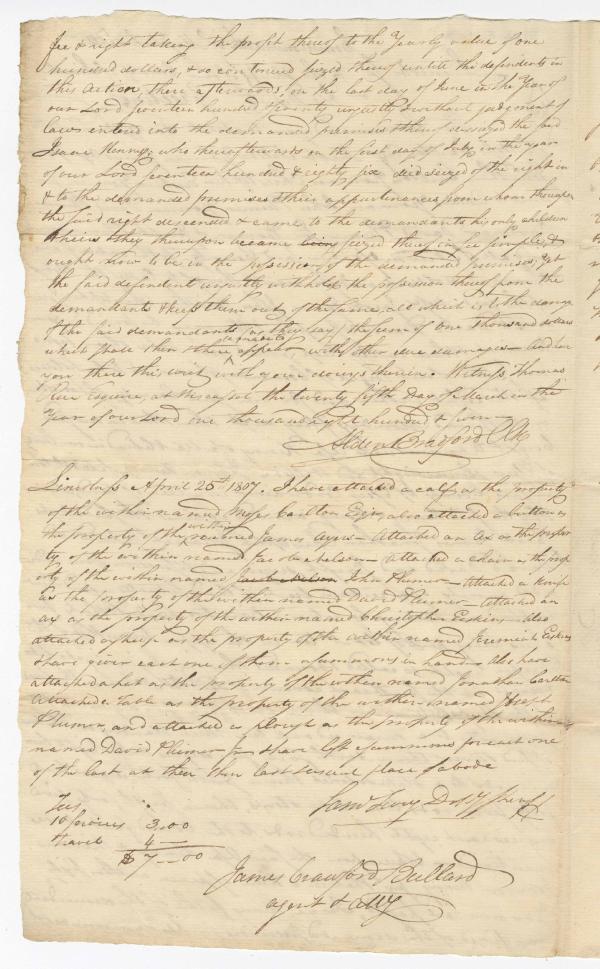 fee & right taking the profits thereof to the Yearly value of one
hundred dollars, & so continued seized thereof until the defendents in
this Action, there afterwards, on the last day of June in the Year of
our Lord seventeen hundred & seventy unjustly & without judgment of
law entered into the demanded premises & thereof disseized the said
Isaac who thereafterwards on the first day of July in the year
of our Lord seventeen hundred & eighty six died seized of the right in
& to the demanded premises & their appurtenances from whom thereupon
the said right descended & came to the demandants his only children
& heirs & they thereupon became being seized thereof in fee simple, &
ought now to be in the possession of the demanded premises, yet
the said defendents unjustly withhold the possession thereof from the
demandants & keep them out of the same, all which is to the damage
of the said demandants (as they say) the sum of one thousand dollars
which shall then & there be made to appear with other due damages. And have
you there this writ with your doings therein. Witness Thomas
Rice esquire, at the twenty fifth Day of March in the
Year of our Lord one thousand eight hundred & seven
Alden Bradford Clk
Lincoln ss April 25th 1807. I have attached a calf as the property
of the within named Moses Carlton Esqr, also attached a button as
the property of the within named James Ayers - Attached an ax as the proper
ty of the within named Jacob Nelson - attached a chain as the prop
erty of the within named Jacob Nelson John Plumer - Attached a knife
as the property of the within named David Plumer - Attached an
ax as the property of the within named Christopher Erskins - also
attached a sheep as the property of the within named Jeremiah Erskins
& have given each one of them a summons in hand - Also have
attached a hat as the property of the within named Jonathan Carlton
Attached a Table as the property of the within named
Plumer, and attached a plough as the property of the within
named David Plumer Jr & have left a summons for each one
of the last at their last usual place of abode
Saml Dpty Sheriff
Fees
10 services 3,00
travel 4 —
$7 — 00
James Crawford Bullard
agent & Atty